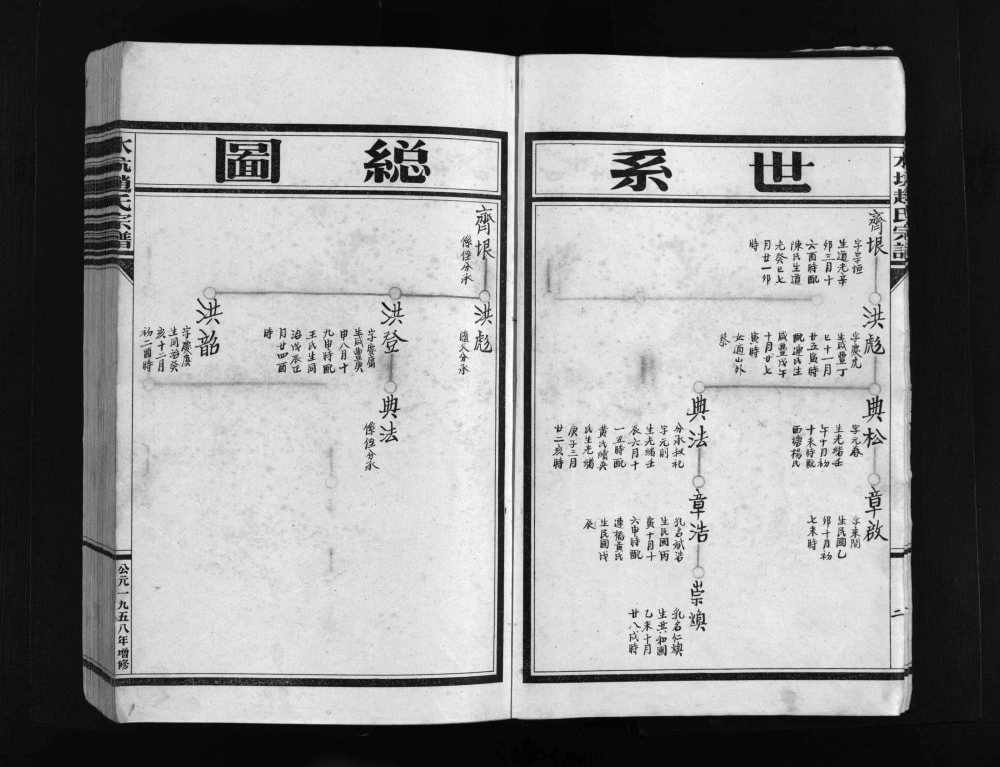 世系
齊垠
字崇垣
生道光辛
卯三月十
六酉時配
陳氏生道
光癸巳七
月廿一卯
時
洪彪
字慶虎
生咸豐丁
巳十一月
廿五寅時
配連氏生
咸豐戊午
十月廿七
寅時
女適山外
蔡
典松
字元春
生光緒壬
午十月初
十未時配
西塘楊氏
章啟
字東閣
生民國乙
卯十月初
七未時
典法
分承叔礼
字元則
生光緒壬
辰六月十
一丑時配
黄氏續吳
氏生光緒
庚子三月
廿二亥時
章浩
乳名斌若
生民國丙
寅十月十
六申時配
連楊黄氏
生民國戊
辰
崇煥
乳名仁煥
生共和國
乙未十月
廿八戌時
二
總圖
齊垠
係侄分承
洪彪
匯入分承
洪登
字慶爵
生咸豐庚
申八月十
九申時配
王氏生同
治戊辰四
月廿四酉
時
典法
係侄分承
洪韶
字慶虞
生同治癸
亥十二月
初二酉時
公元一九五八年增修